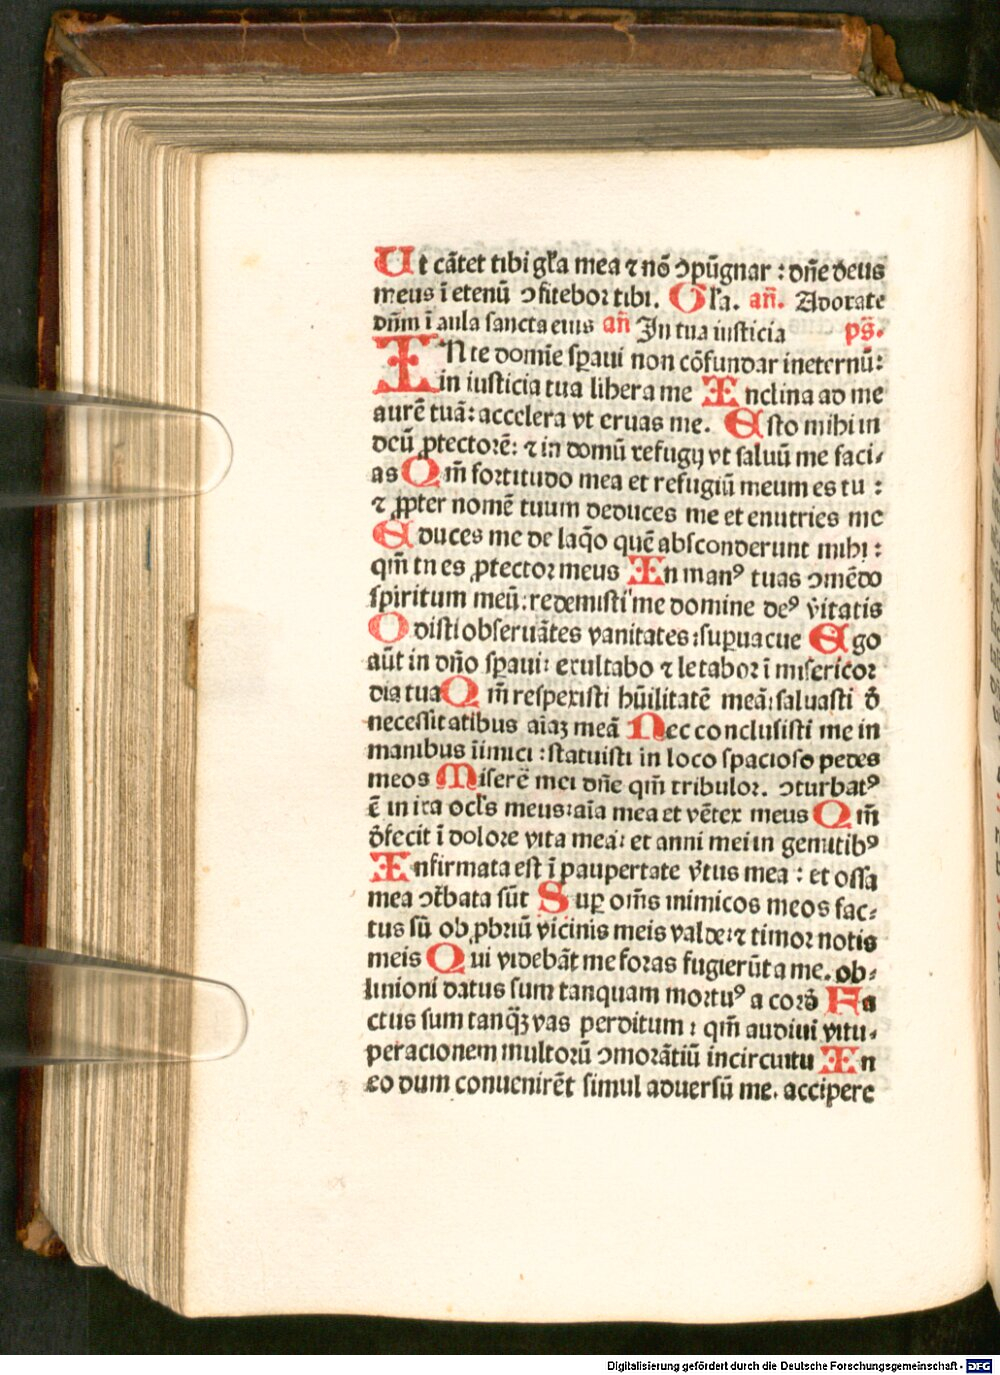 Ut cãtet tibi gl̃a mea ⁊ nõ ↄpũgnar : dñe deus
meus ĩ etenũ ↄfitebor tibi. Gl̃a. añ. Adorate
dñm ĩ aula sancta eius añ In tua iusticia ps̃.
IN te domie sꝑaui non cõfundar ineternũ:
in iusticia tua libera me Inclina ad me
aurẽ tuã: accelera vt eruas me. Esto mihi in
deũ ꝓtectorẽ: ⁊ in domũ refugij vt saluũ me faci⸗
as Qm̃ fortitudo mea et refugiũ meum es tu :
⁊ ꝓpter nomẽ tuum deduces me et enutries me
Educes me de laq̃o quẽ absconderunt mihi :
qm̃ tu es ꝓtector meus In manꝰ tuas ↄmẽdo
spiritum meũ: redemisti me domine deꝰ ṽitatis
Odisti obseruãtes vanitates: suꝑuacue Ego
aũt in dño sꝑaui: exultabo ⁊ letabor ĩ misericor
dia tua Qm̃ respexisti hũilitatẽ meã: saluasti d̃
necessitatibus aĩaꝫ meã Nec conclusisti me in
manibus ĩimici : statuisti in loco spacioso pedes
meos Miserẽ mei dñe qm̃ tribulor. ↄturbatꝰ
ẽ in ira ocl̃s meus: aĩa mea et vẽter meus Qm̃
d̃fecit ĩ dolore vita mea: et anni mei in gemitibꝰ
Infirmata est ĩ paupertate ṽtus mea : et ossa
mea ↄt̃bata sũt Suꝑ om̃s inimicos meos fac⸗
tus sũ obꝓbriũ vicinis meis valde: ⁊ timor notis
meis Qui videbãt me foras fugierũt a me. ob⸗
liuioni datus sum tanquam mortuꝰ a cord̃ Fa
ctus sum tanq̃ꝫ vas perditum : qm̃ audiui vitu⸗
peracionem multorũ ↄmorãtiũ incircuitu In
eo dum conuenirẽt simul aduersũ me. accipere
Digitalisierung gefördert durch die Deutsche Forschungsgemeinschaft - DFG